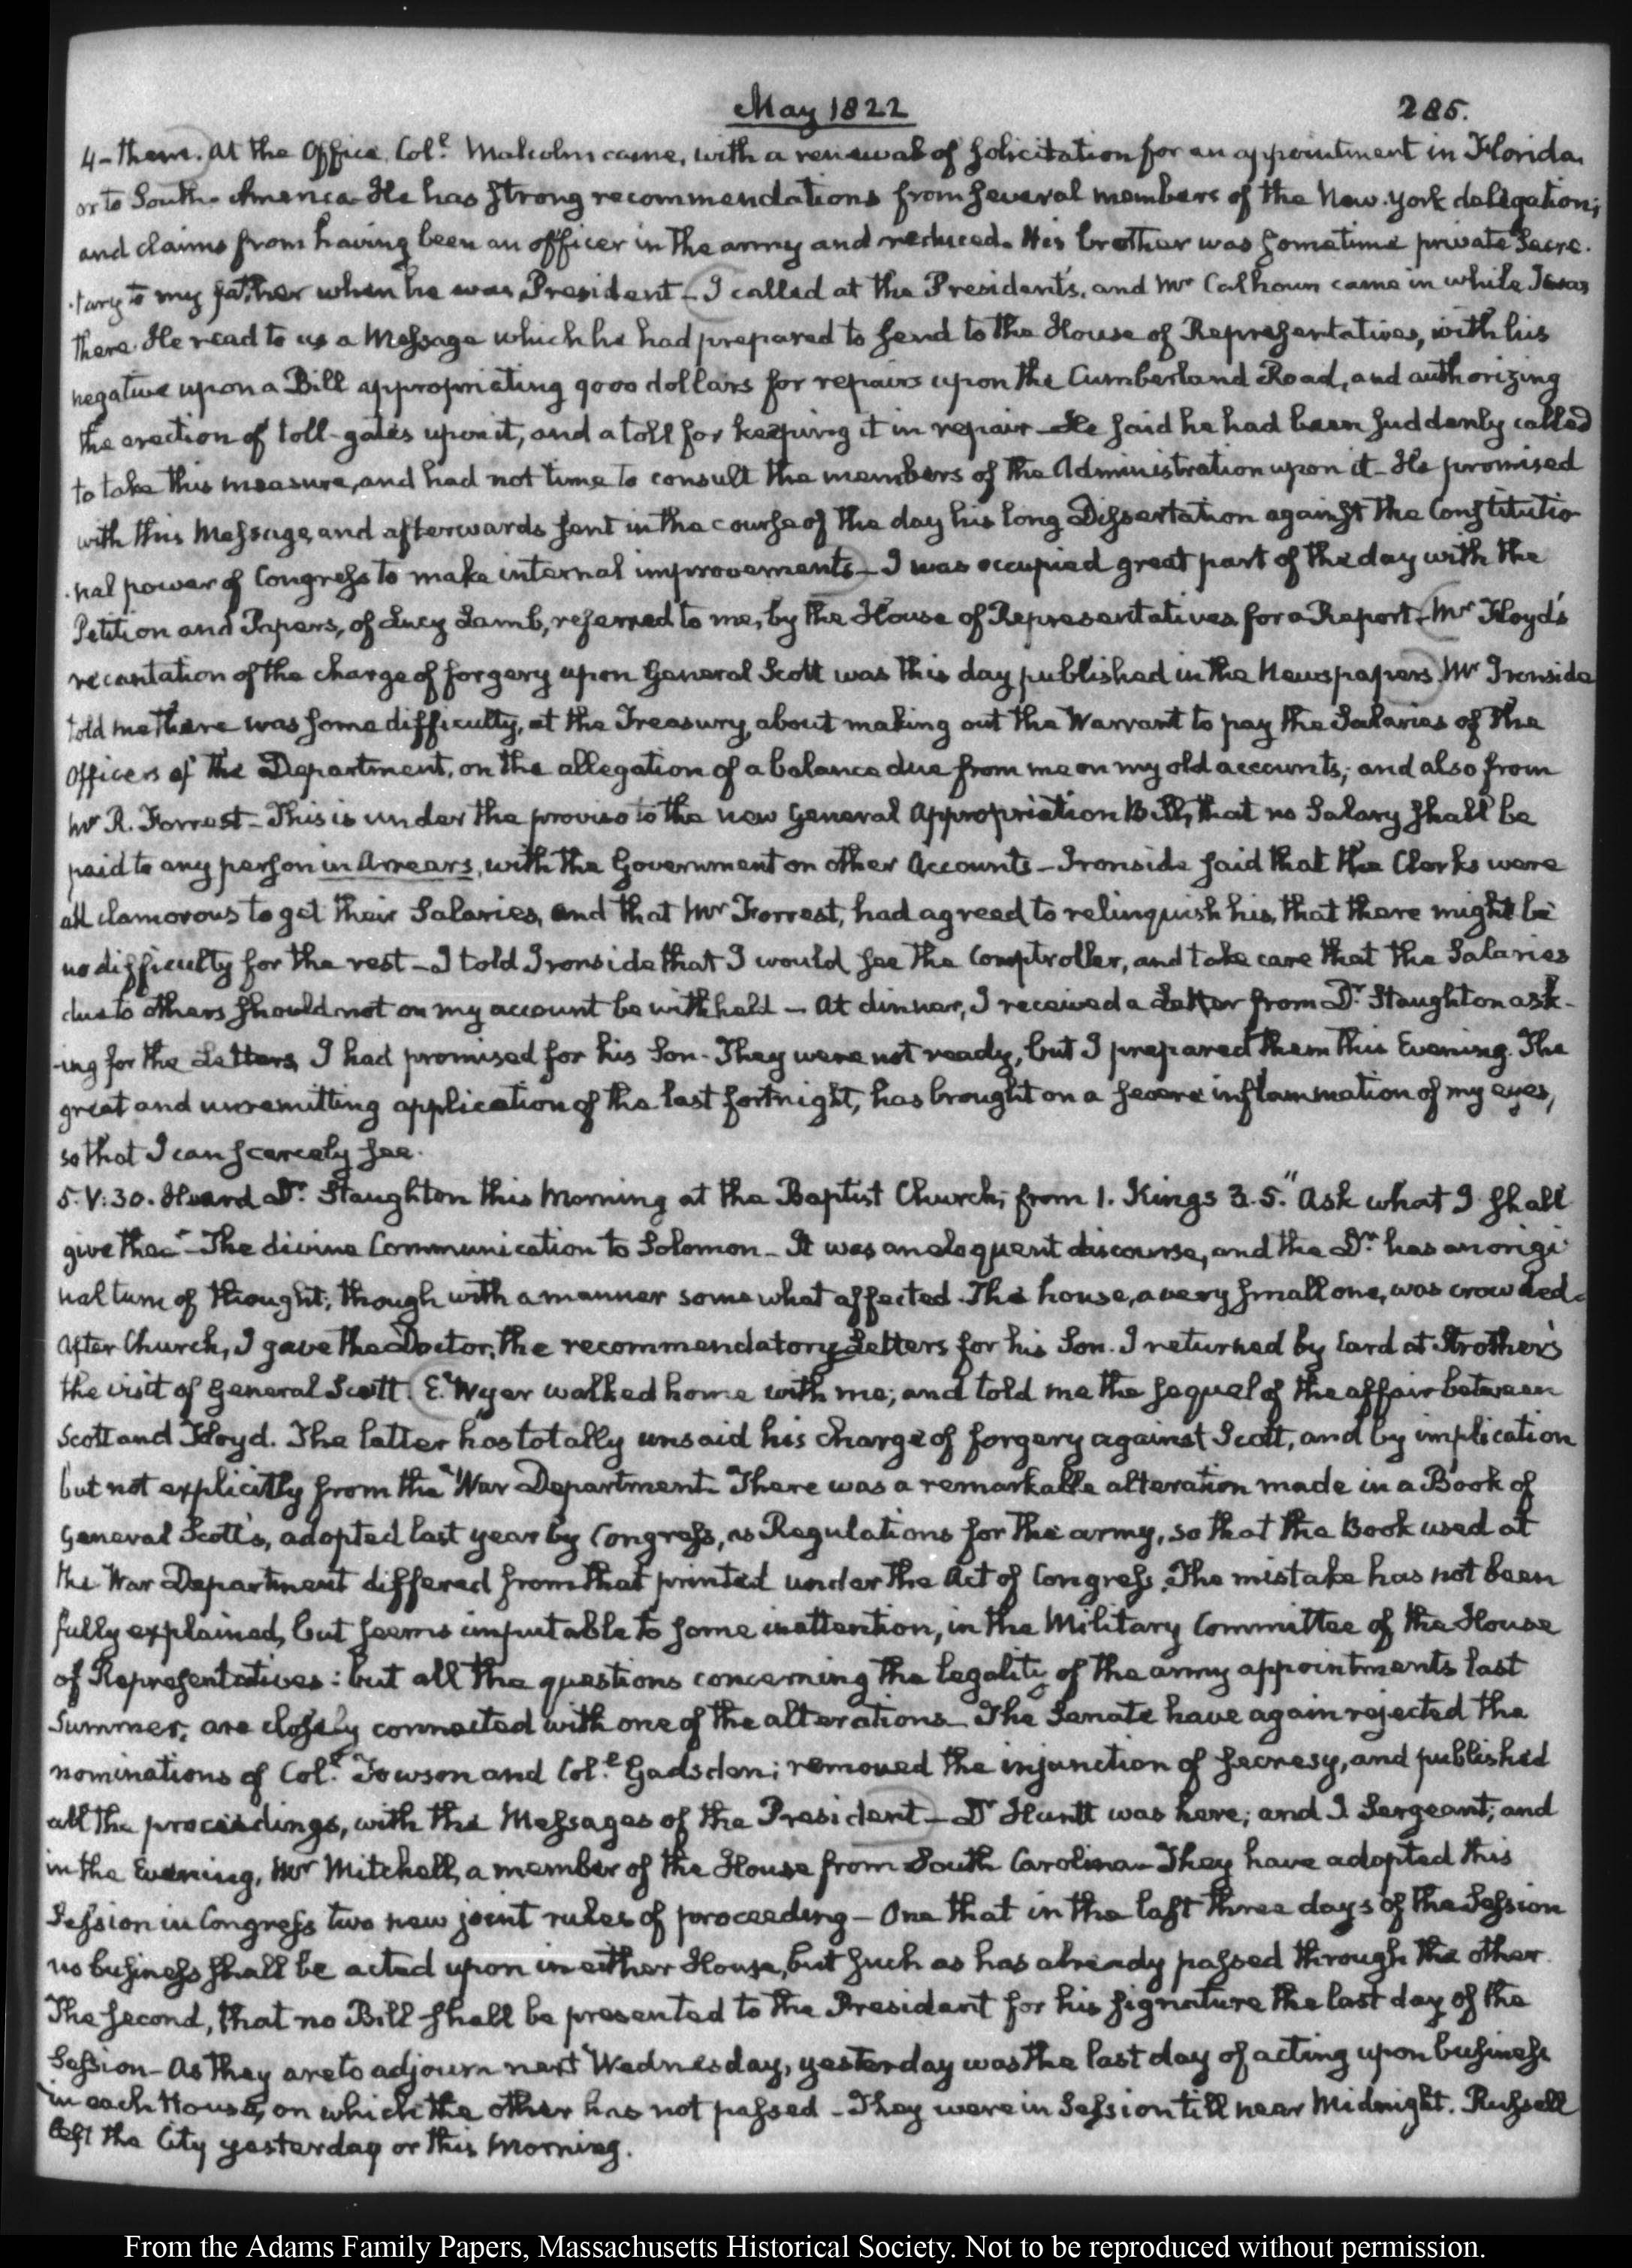 May 1822
285.
4- them. At the Office, Col.l Malcolm came, with a renewal of solicitation for an appointment in Florida
or to South America. He has strong recommendations from several members of the New-York delegation;
and claims from having been an officer in the army and reduced. His brother was sometime private Secre-
-tary to my father when he was President - I called at the President's, and Mr Calhoun came in while I was
there. He read to us a Message which he had prepared to send to the House of Representatives, with his
negative upon a Bill appropriating 9000 dollars for repairs upon the Cumberland Road, and authorizing
the erection of toll-gates upon it, and a toll for keeping it in repair - He said he had been suddenly called
to take this measure, and had not time to consult the members of the Administration upon it - He promised
with this Message, and afterwards sent in the course of the day his long Dissertation against the Constitutio-
-nal power of Congress to make internal improvements - I was occupied great part of the day with the
Petition and Papers, of Lucy Lamb, referred to me, by the House of Representatives for a Report - Mr Floyd's
recantation of the charge of forgery upon General Scott was this day published in the Newspapers. Mr Ironside
told me there was some difficulty, at the Treasury, about making out the Warrant to pay the Salaries of the
Officers of the Department, on the allegation of a balance due from me on my old accounts; and also from
Mr R. Forrest - This is under the proviso to the new General Appropriation Bill, that no Salary shall be
paid to any person in Arrears, with the Government on other Accounts - Ironside said that the Clerks were
all clamorous to get their Salaries, and that Mr Forrest, had agreed to relinquish his, that there might be
no difficulty for the rest - I told Ironside that I would see the Comptroller, and take care that the Salaries
due to others should not on my account be withheld - At dinner, I received a Letter from Dr Staughton ask-
-ing for the Letters, I had promised for his Son - They were not ready, but I prepared them this Evening. The
great and unremitting application of the last fortnight, has brought on a severe inflammation of my eyes,
so that I can scarcely see.
5. V:30. Heard Dr. Staughton this Morning at the Baptist Church; from 1. Kings 3.5. "Ask what I shall
give thee" - The divine Communication to Solomon - It was an eloquent discourse, and the Dr. has an origi-
nal turn of thought; though with a manner somewhat affected. The house, a very small one, was crowded.
After Church, I gave the Doctor, the recommendatory Letters for his Son. I returned by Card at Strother's
the visit of General Scott. E. Wyer walked home with me; and told me the sequel of the affair between
Scott and Floyd. The latter has totally unsaid his charge of forgery against Scott, and by implication
but not explicitly from the War Department. There was a remarkable alteration made in a Book of
General Scott's, adopted last year by Congress, as Regulations for the army, so that the Book used at
the War Department differed from that printed under the Act of Congress. The mistake has not been
fully explained, but seems imputable to some inattention, in the Military Committee of the House
of Representatives: but all the questions concerning the legality of the army appointments last
Summer, are closely connected with one of the alterations - The Senate have again rejected the
nominations of Col.l Towson and Col.l Gadsden; removed the injunction of secresy, and published
all the proceedings, with the Messages of the President - Dr Huntt was here; and I Sergeant; and
in the Evening, Mr Mitchell, a member of the House from South Carolina - They have adopted this
Session in Congress two new joint rules of proceeding - One that in the last three days of the Session
no business shall be acted upon in either House, but such as has already passed through the other.
The second, that no Bill shall be presented to the President for his signature the last day of the
Session - As they are to adjourn next Wednesday, yesterday was the last day of acting upon business
in each House, on which the other has not passed - They were in Session till near Midnight. Russell
left the City yesterday or this Morning.
From the Adams Family Papers, Massachusetts Historical Society. Not to be reproduced without permission.